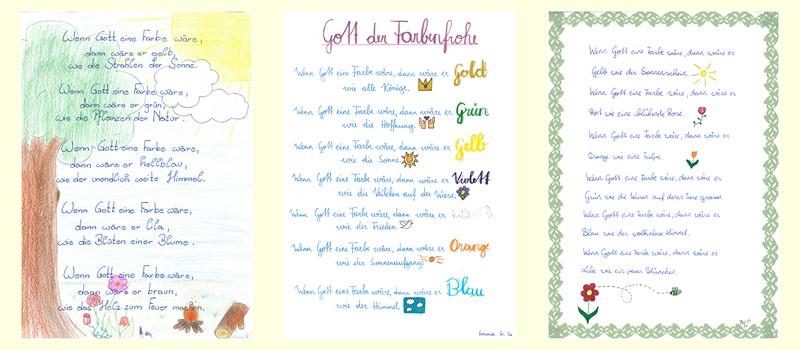 Wenn Gott eine Farbe wäre,
dann wäre er gelb,
wie die Strahlen der Sonne.
Wenn Gott eine Farbe wäre,
dann wäre er grün,
wie die Pflanzen der Natur.
Wenn Gott eine Farbe wäre,
dann wäre er hellblau,
wie der unendlich weite Himmel.
Wenn Gott eine Farbe wäre,
dann wäre er lila,
wie die Blüten einer Blume.
Wenn Gott eine Farbe wäre,
dann wäre er braun,
wie das Holz zum Feuer machen.
Gott der Farbenfrohe
Wenn Gott eine Farbe wäre, dann wäre er Gold
wie alle Könige.
Wenn Gott eine Farbe wäre, dann wäre er Grün
wie die Hoffnung.
Wenn Gott eine Farbe wäre, dann wäre er Gelb
wie die Sonne.
Wenn Gott eine Farbe wäre, dann wäre er Violett
wie die Veilchen auf der Wiese.
Wenn Gott eine Farbe wäre, dann wäre er
wie der Frieden.
Wenn Gott eine Farbe wäre, dann wäre er Orange
wie der Sonnenaufgang.
Wenn Gott eine Farbe wäre, dann wäre er Blau
wie der Himmel.
Wenn Gott eine Farbe wäre, dann wäre er
Gelb wie der Sonnenschein.
Wenn Gott eine Farbe wäre, dann wäre er
Rot wie eine blühende Rose.
Wenn Gott eine Farbe wäre, dann wäre er
Orange wie eine Tulpe.
Wenn Gott eine Farbe wäre, dann wäre er
Grün wie die Wiese auf der
Wenn Gott eine Farbe wäre, dann wäre er
Blau wie der wolkenlose Himmel.
Wenn Gott eine Farbe wäre, dann wäre er
Lila wie ein paar Blümchen.